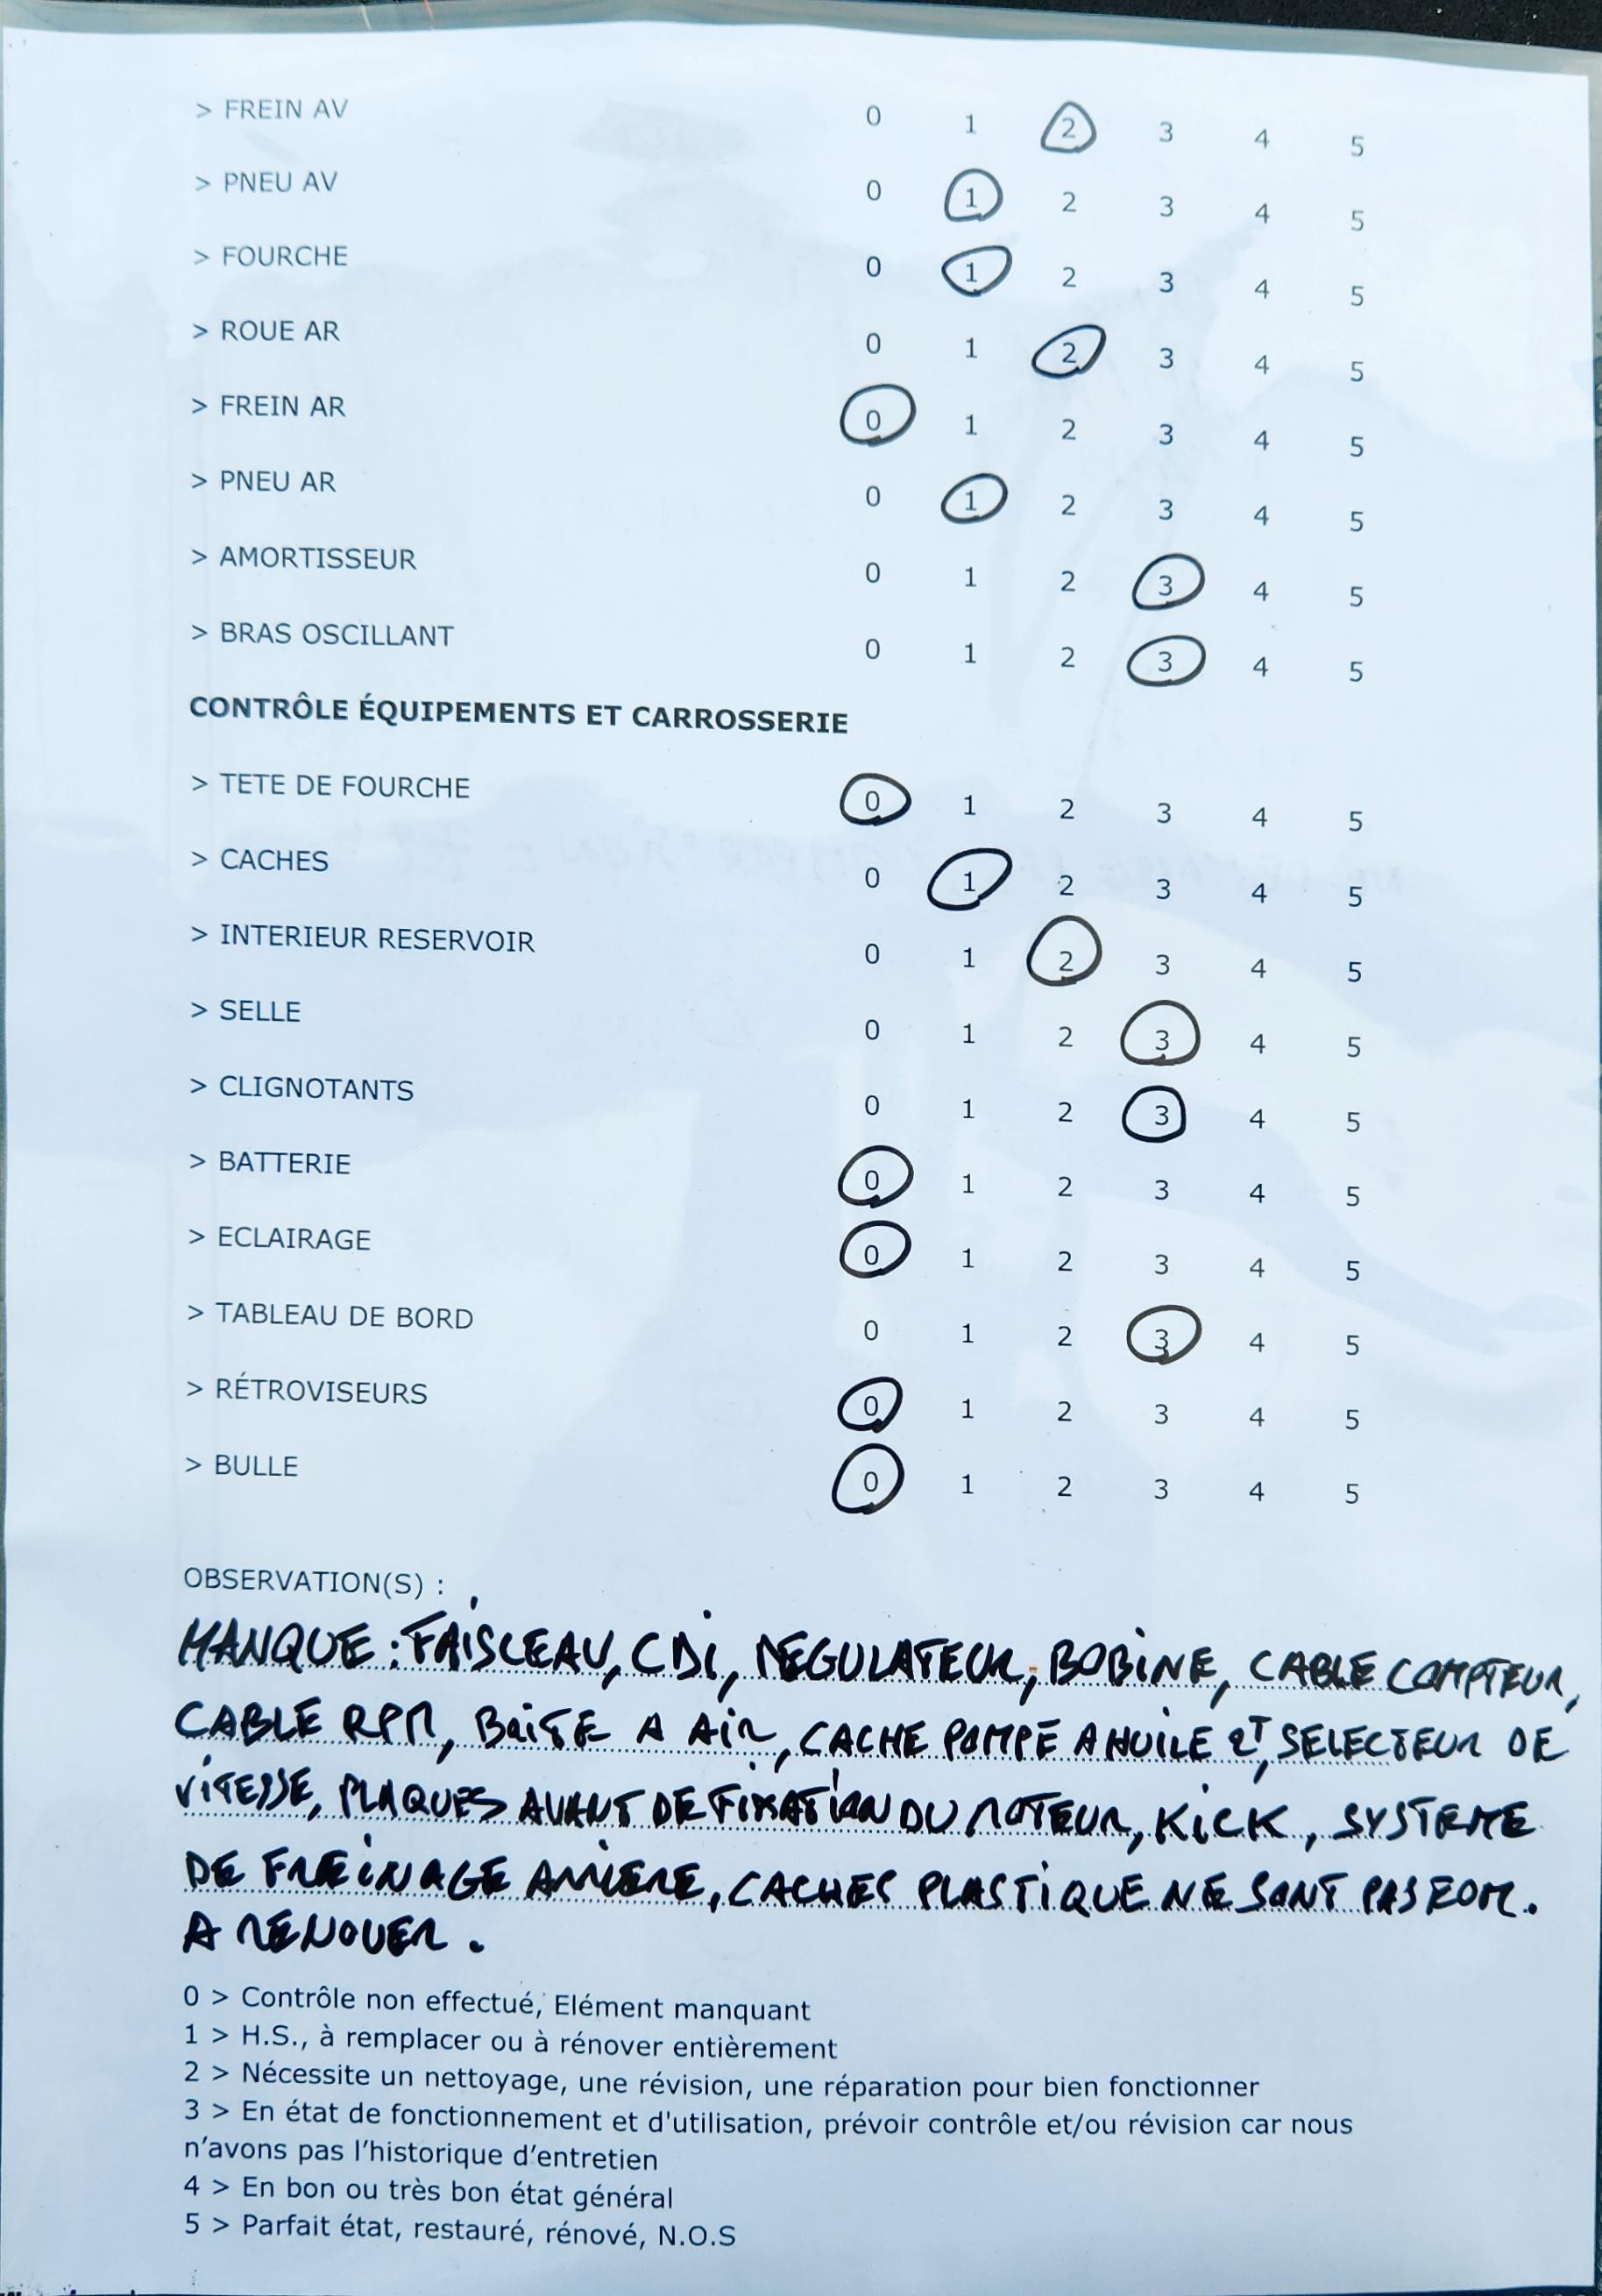 > FREIN AV 0 1 2 3 4 5
> PNEU AV 0 1 2 3 4 5
> FOURCHE 0 1 2 3 4 5
> ROUE AR 0 1 2 3 4 5
> FREIN AR 0 1 2 3 4 5
> PNEU AR 0 1 2 3 4 5
> AMORTISSEUR 0 1 2 3 4 5
> BRAS OSCILLANT 0 1 2 3 4 5
CONTRÔLE ÉQUIPEMENTS ET CARROSSERIE
> TETE DE FOURCHE 0 1 2 3 4 5
> CACHES 0 1 2 3 4 5
> INTERIEUR RESERVOIR 0 1 2 3 4 5
> SELLE 0 1 2 3 4 5
> CLIGNOTANTS 0 1 2 3 4 5
> BATTERIE 0 1 2 3 4 5
> ECLAIRAGE 0 1 2 3 4 5
> TABLEAU DE BORD 0 1 2 3 4 5
> RÉTROVISEURS 0 1 2 3 4 5
> BULLE 0 1 2 3 4 5
OBSERVATION(S) :
MANQUE : FAISCEAU, CDI, REGULATEUR, BOBINE, CABLE COMPTEUR,
CABLE RPM, BOITE A AIR, CACHE POMPE A HUILE 2T, SELECTEUR DE
VITESSE, PLAQUES AVANT DE FIXATION DU MOTEUR, KICK, SYSTEME
DE FREINAGE ARRIERE, CACHES PLASTIQUE NE SONT PAS EOM.
A RENOVER.
0 > Contrôle non effectué, Elément manquant
1 > H.S., à remplacer ou à rénover entièrement
2 > Nécessite un nettoyage, une révision, une réparation pour bien fonctionner
3 > En état de fonctionnement et d'utilisation, prévoir contrôle et/ou révision car nous
n'avons pas l'historique d'entretien
4 > En bon ou très bon état général
5 > Parfait état, restauré, rénové, N.O.S